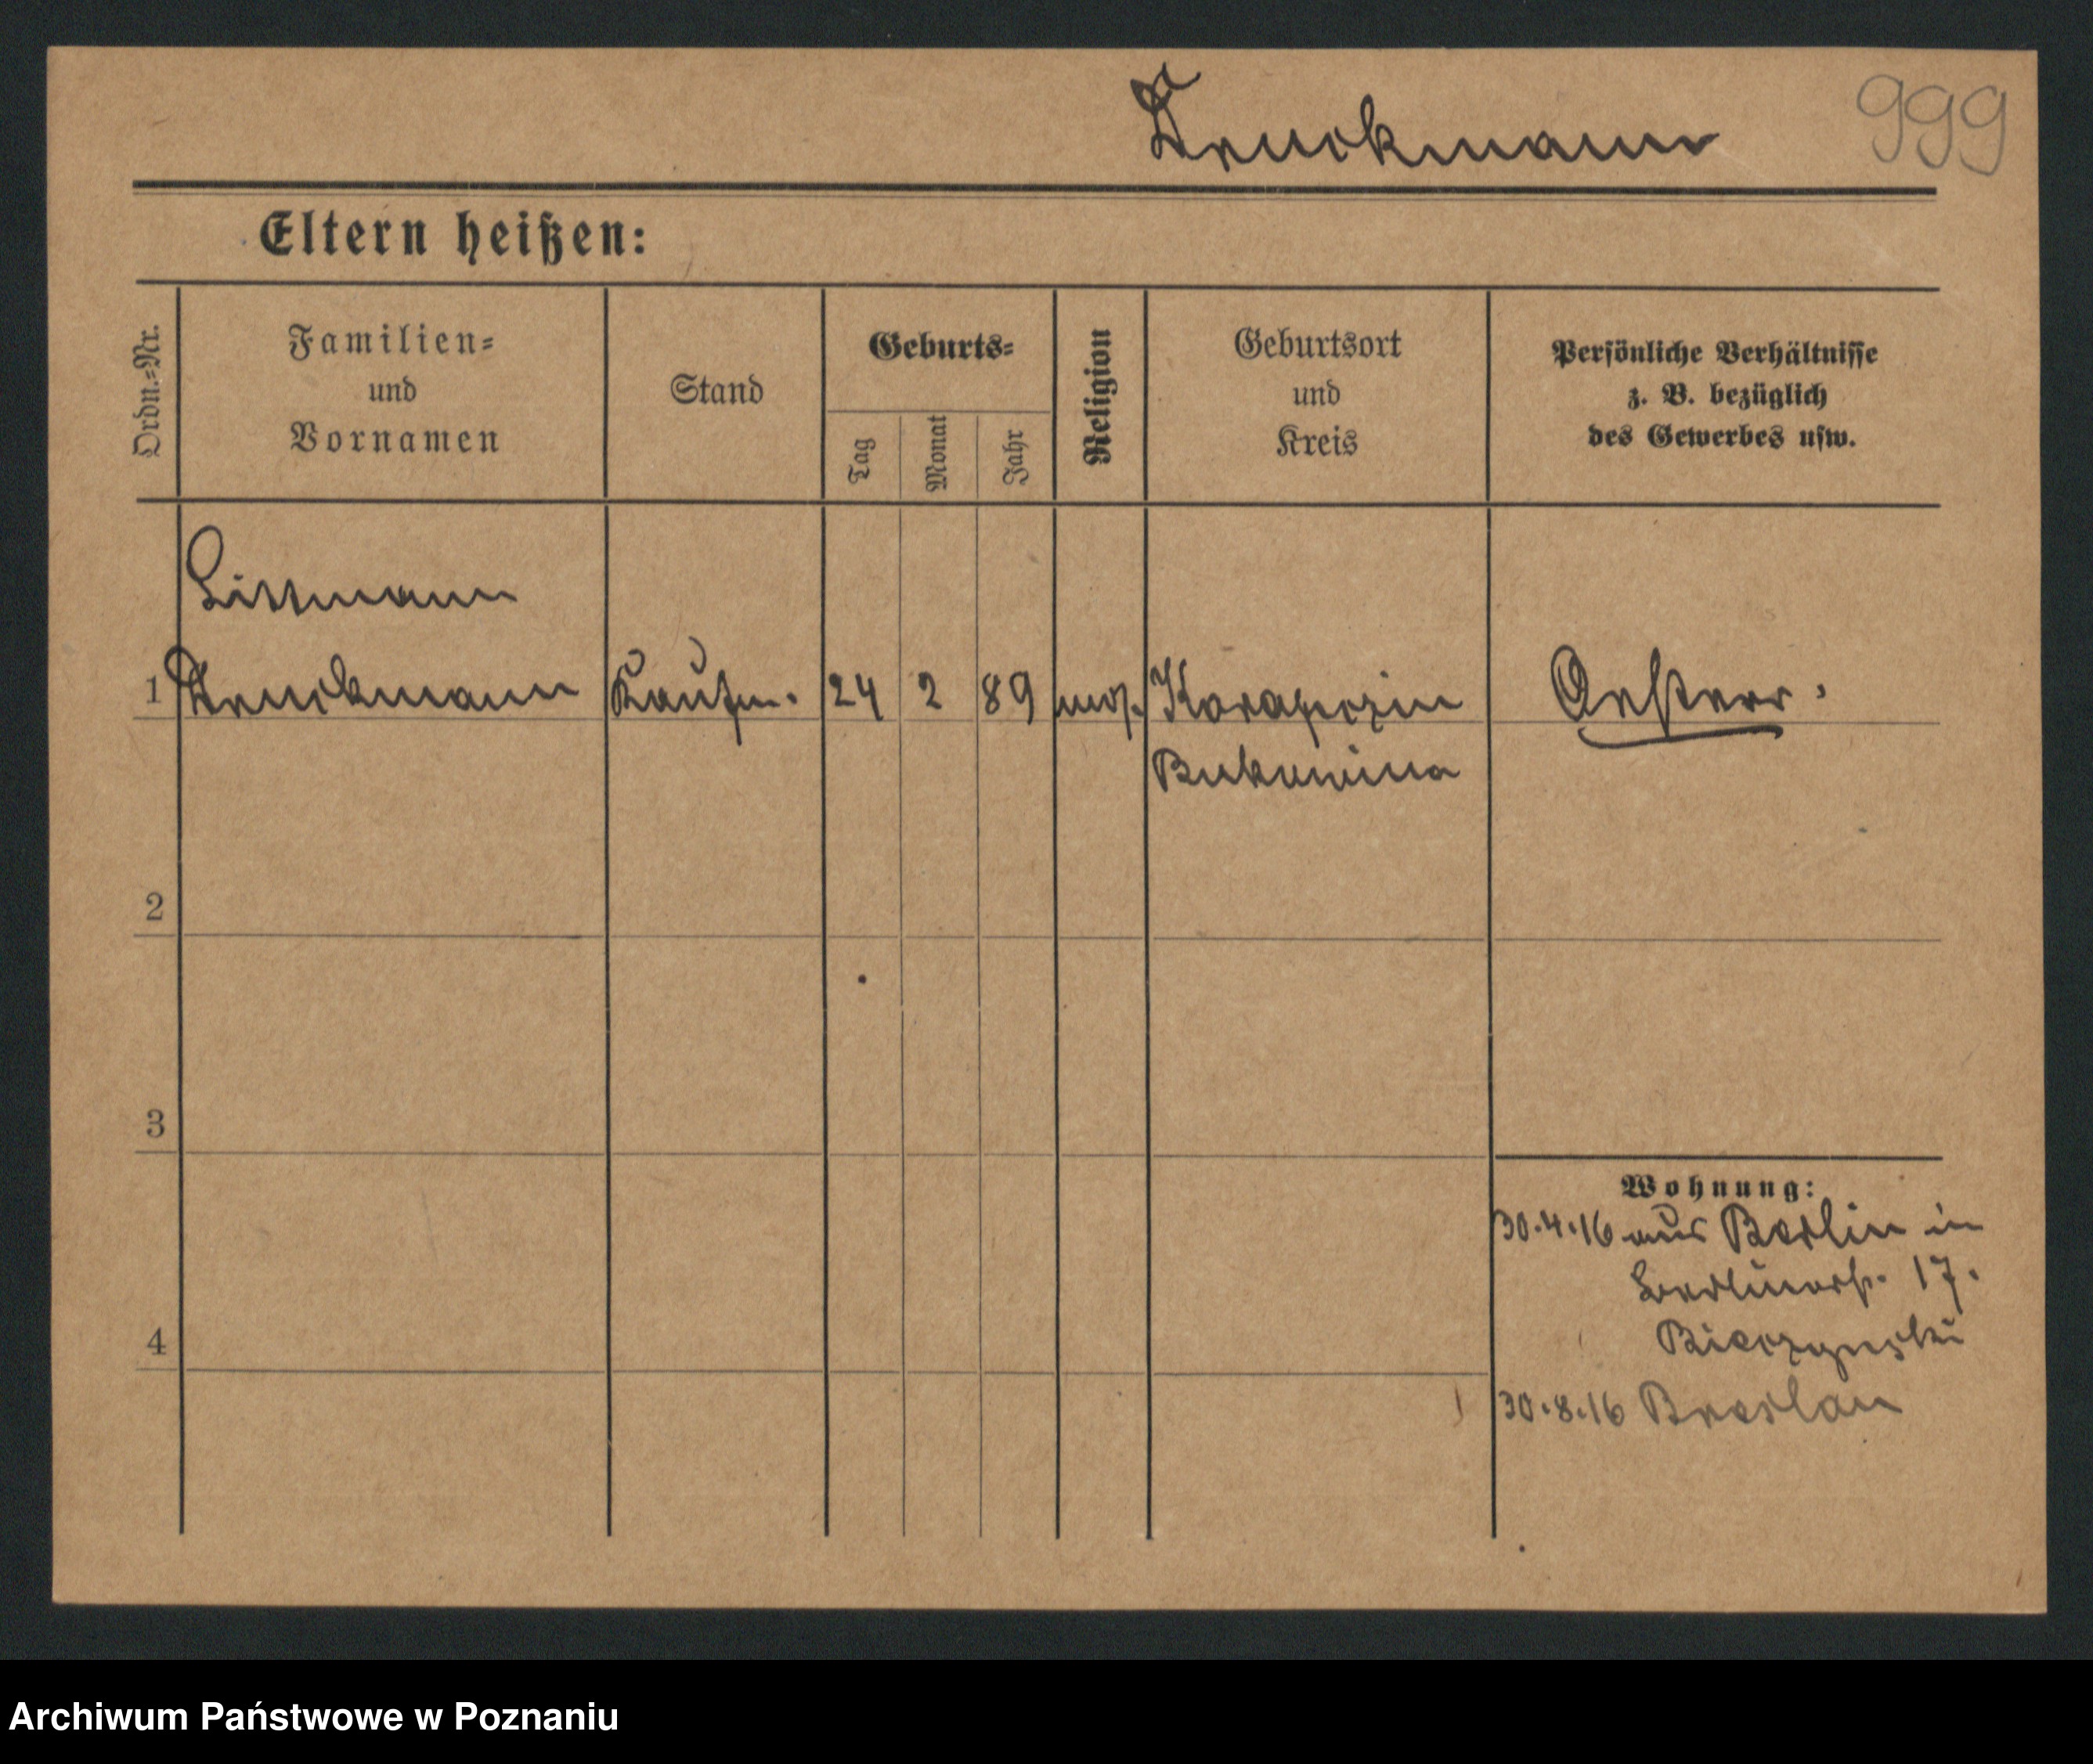 Druckmann
999
Eltern heißen:
Ordn.-Nr.
Familien-
und
Vornamen
Stand
Geburts-
Tag
Monat
Jahr
Religion
Geburtsort
und
Kreis
Persönliche Verhältnisse
z. B. bezüglich
des Gewerbes usw.
Littmann
1 Druckmann Kaufm. 24 2 89 mos. Oesterr.
Bukowina
2
3
Wohnung:
30.4.16 aus Berlin in
Berlinerstr. 17.
4
30.8.16 Breslau
Archiwum Państwowe w Poznaniu